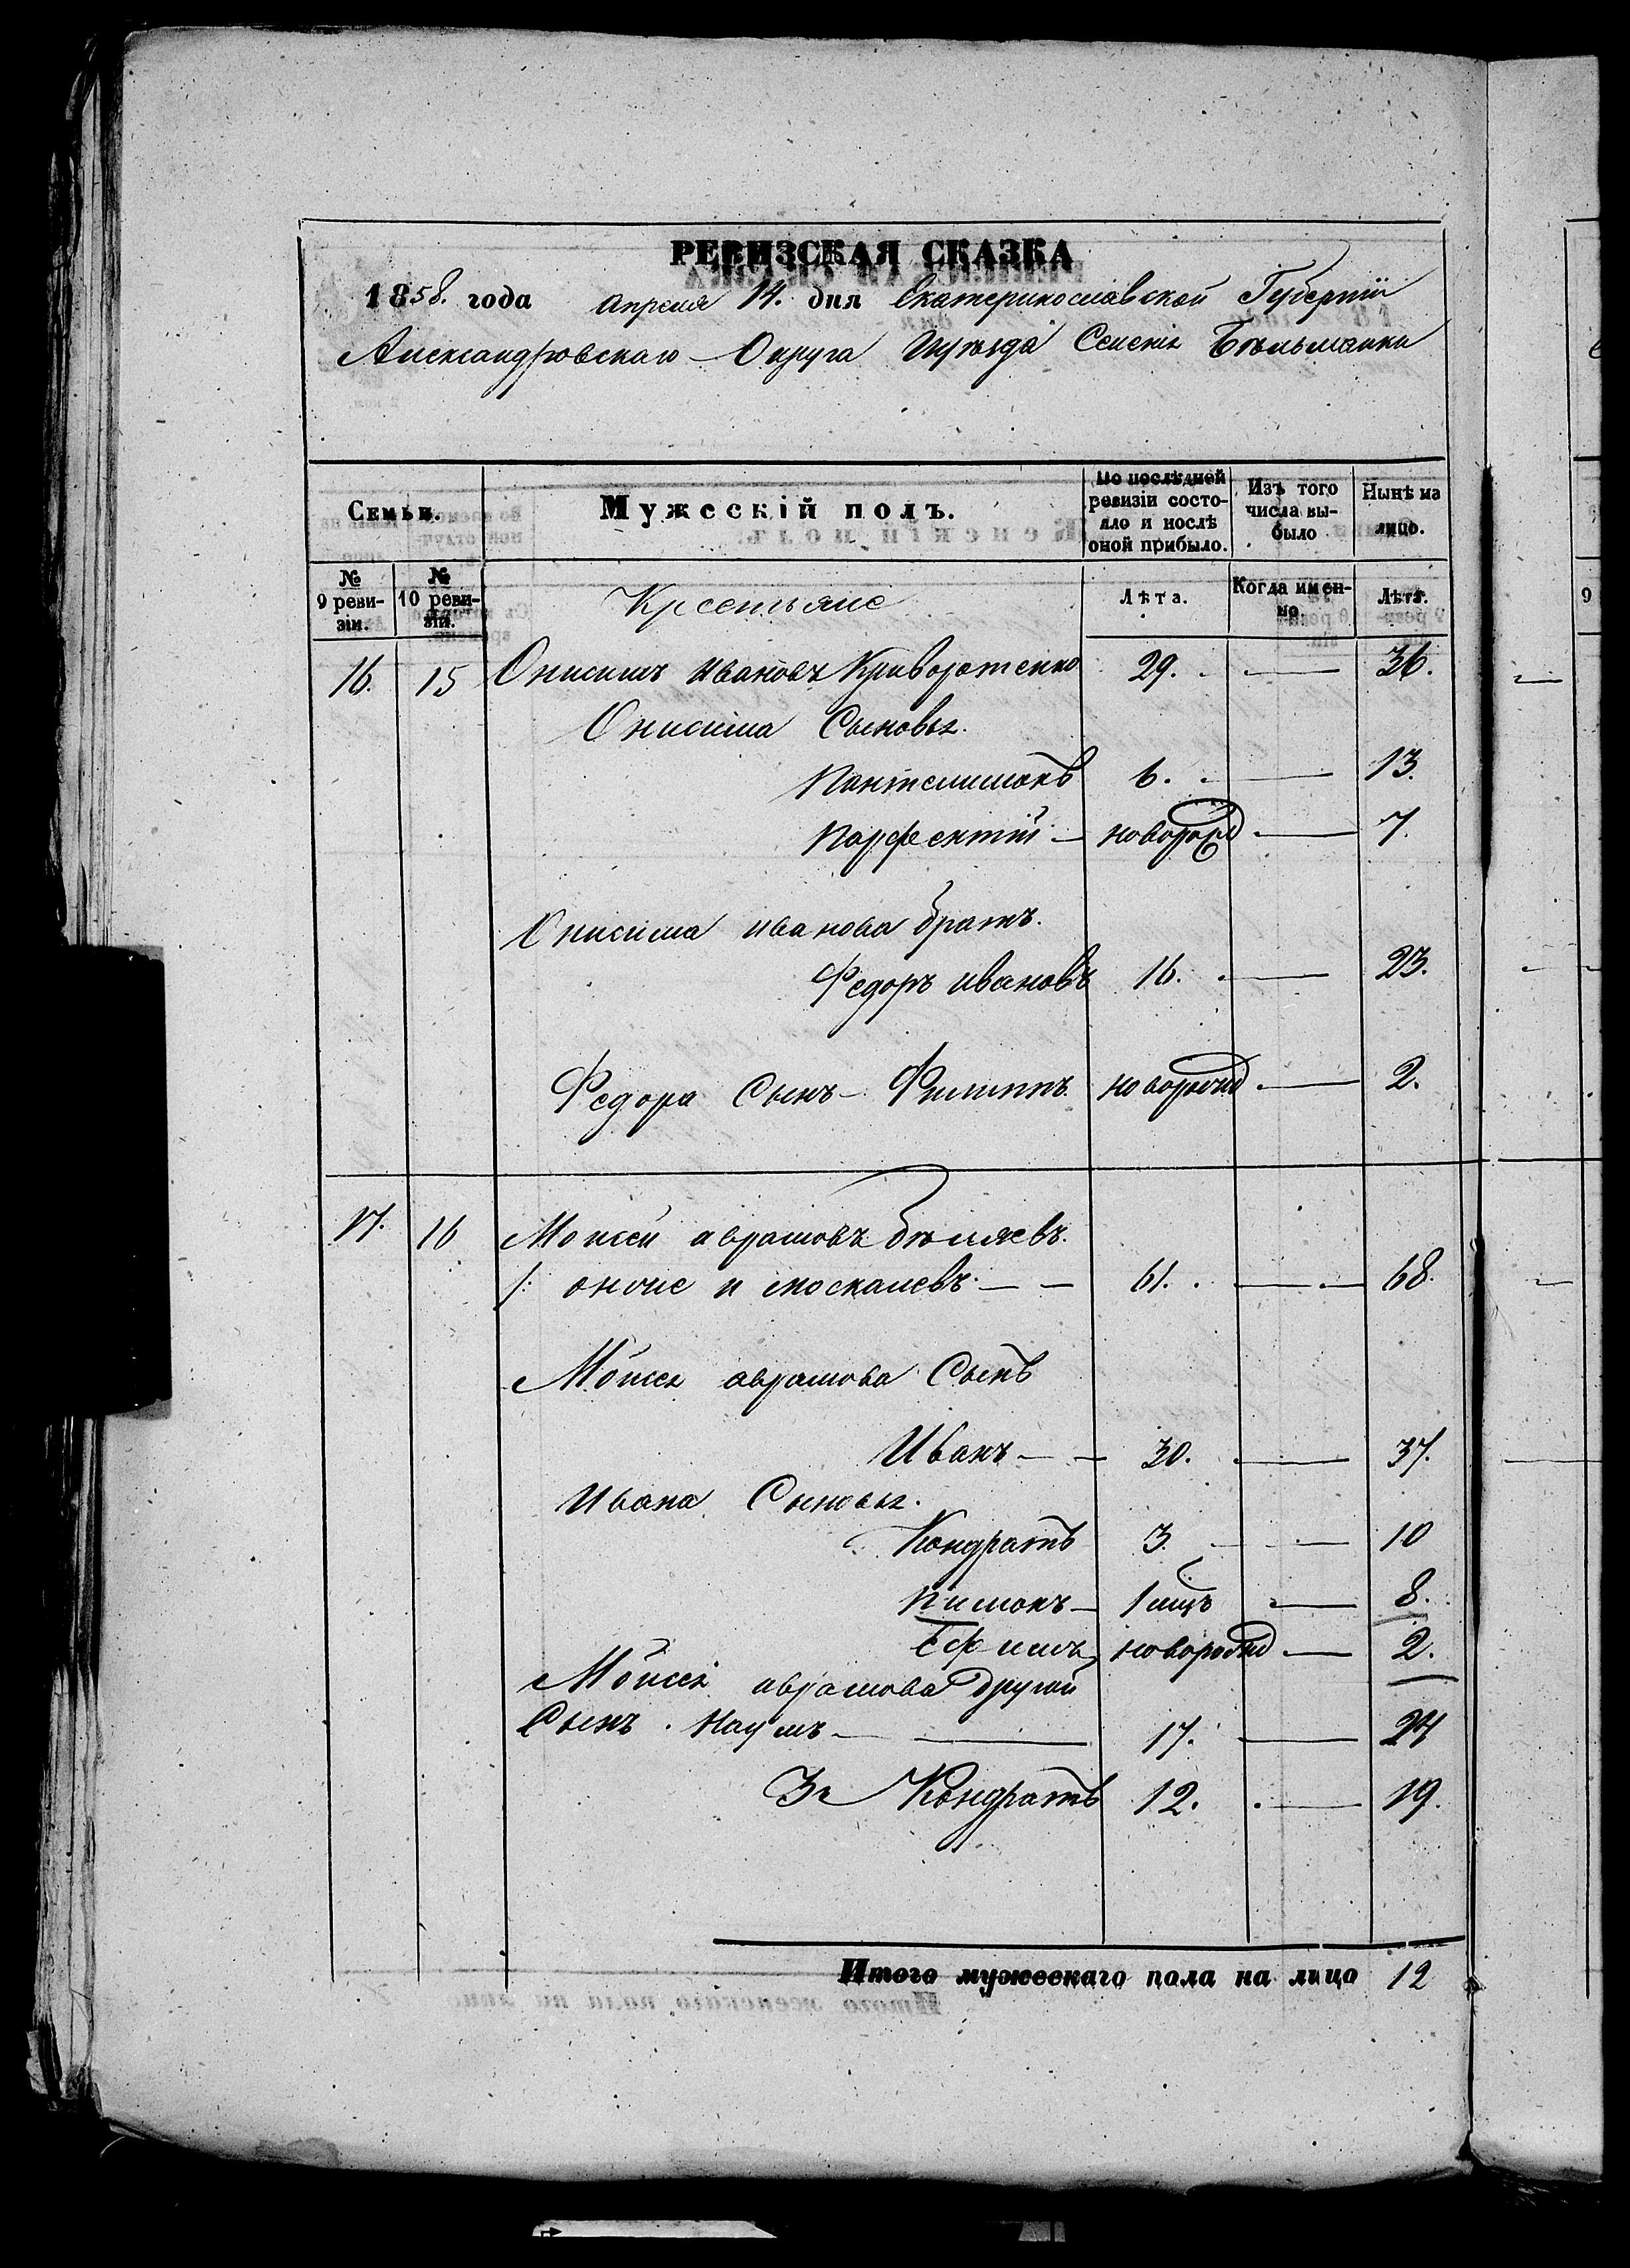 РЕВИЗСКАЯ СКАЗКА
1858. года апреля 14. дня Екатеринославской Губерніи
Александровскаго Округа И уезда Селенія Бѣльманки
Семьи.
Мужескій полъ.
По послѣдней ревизіи состояло и послѣ оной прибыло.
Изъ того числа выбыло
Нынѣ на лицо.
№ 9 ревизіи.
№ 10 ревизіи.
Крестьяне
Лѣта.
Когда именно.
Лѣта.
16. 15 Онисимъ Ивановъ Криворотенко 29. — 36.
Онисима Сыновья.
Пантелимонъ 6. — 13.
Парфентій — новорожд — 7.
Онисима иванова братъ.
Федоръ ивановъ 16. — 23.
Федора Сынъ — Филиппъ. новорожд — 2.
17. 16 Моисей аврамовъ бѣляевъ.
/: онже и москалевъ. — — 61. — 68.
Моисея аврамова Сынъ
Иванъ — — 30. — 37.
Ивана Сыновья.
Кондратъ 3. — 10
Пимонъ — 1 мцъ — 8.
Ефимъ новорожд — 2.
Моисея аврамова другой
Сынъ. Наумъ — 17. — 24
3й Кондратъ 12. — 19.
Итого мужескаго пола на лицо 12